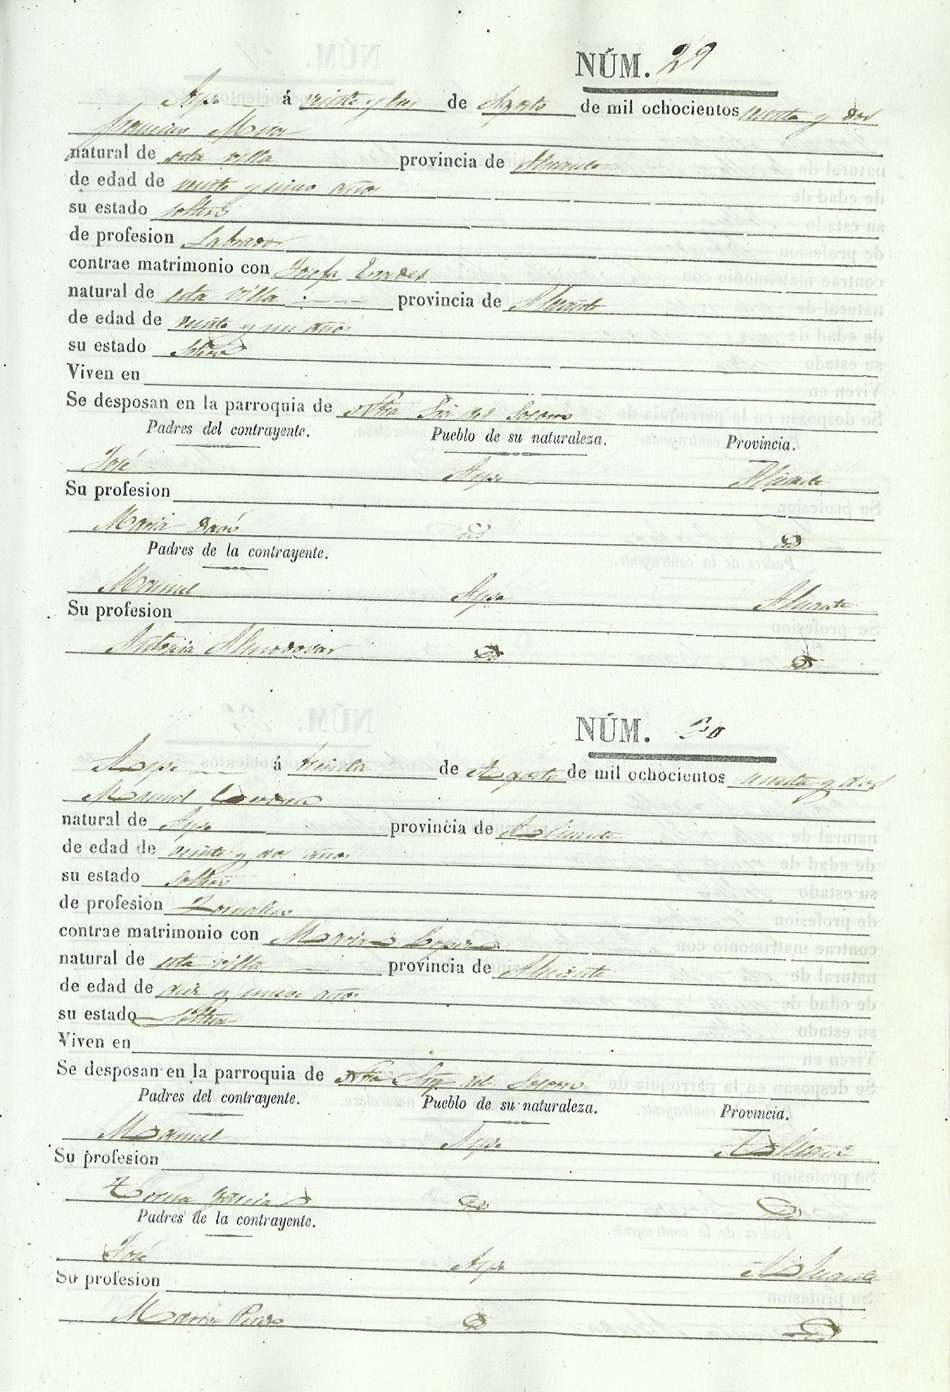 NÚM. 29
Aspe á veinte y tres de Agosto de mil ochocientos sesenta y dos
Francisco Mira
natural de esta villa provincia de Alicante
de edad de veinte y cinco años
su estado soltero
de profesion Labrador
contrae matrimonio con Josefa
natural de esta villa provincia de Alicante
de edad de veinte y un años
su estado soltera
Viven en
Se desposan en la parroquia de Ntra Sra del Socorro
Padres del contrayente. Pueblo de su naturaleza. Provincia.
José Aspe Alicante
Su profesion
Maria id id
Padres de la contrayente.
Manuel Aspe Alicante
Su profesion
Antonia Almodovar id id
NÚM. 30
Aspe á treinta de Agosto de mil ochocientos sesenta y dos
Manuel
natural de Aspe provincia de Alicante
de edad de veinte y dos años
su estado soltero
de profesion Jornalero
contrae matrimonio con Maria
natural de esta villa provincia de Alicante
de edad de diez y nueve años
su estado soltera
Viven en
Se desposan en la parroquia de Ntra Sra del Socorro
Padres del contrayente. Pueblo de su naturaleza. Provincia.
Manuel Aspe Alicante
Su profesion
Garcia id id
Padres de la contrayente.
José Aspe Alicante
Su profesion
Maria id id